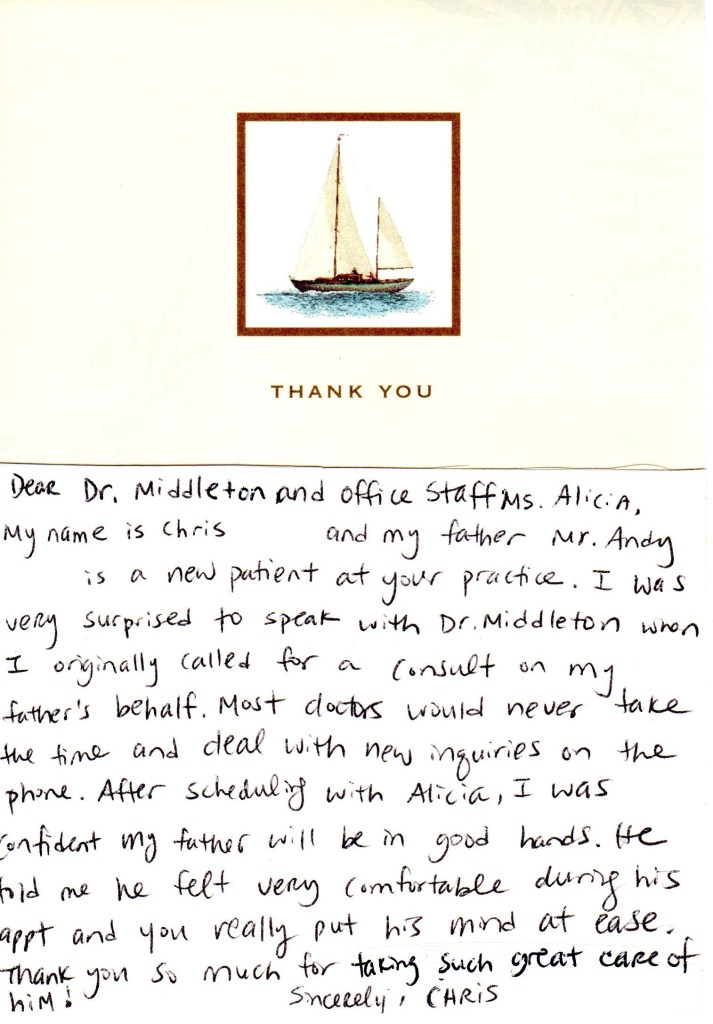 THANK YOU
Dear Dr. Middleton and office Staff Ms. Alicia,
My name is Chris and my father Mr. Andy
is a new patient at your practice. I was
very surprised to speak with Dr. Middleton when
I originally called for a consult on my
father's behalf. Most doctors would never take
the time and deal with new inquiries on the
phone. After scheduling with Alicia, I was
confident my father will be in good hands. He
told me he felt very comfortable during his
appt and you really put his mind at ease.
Thank you so much for taking such great care of
him! Sincerely, CHRIS